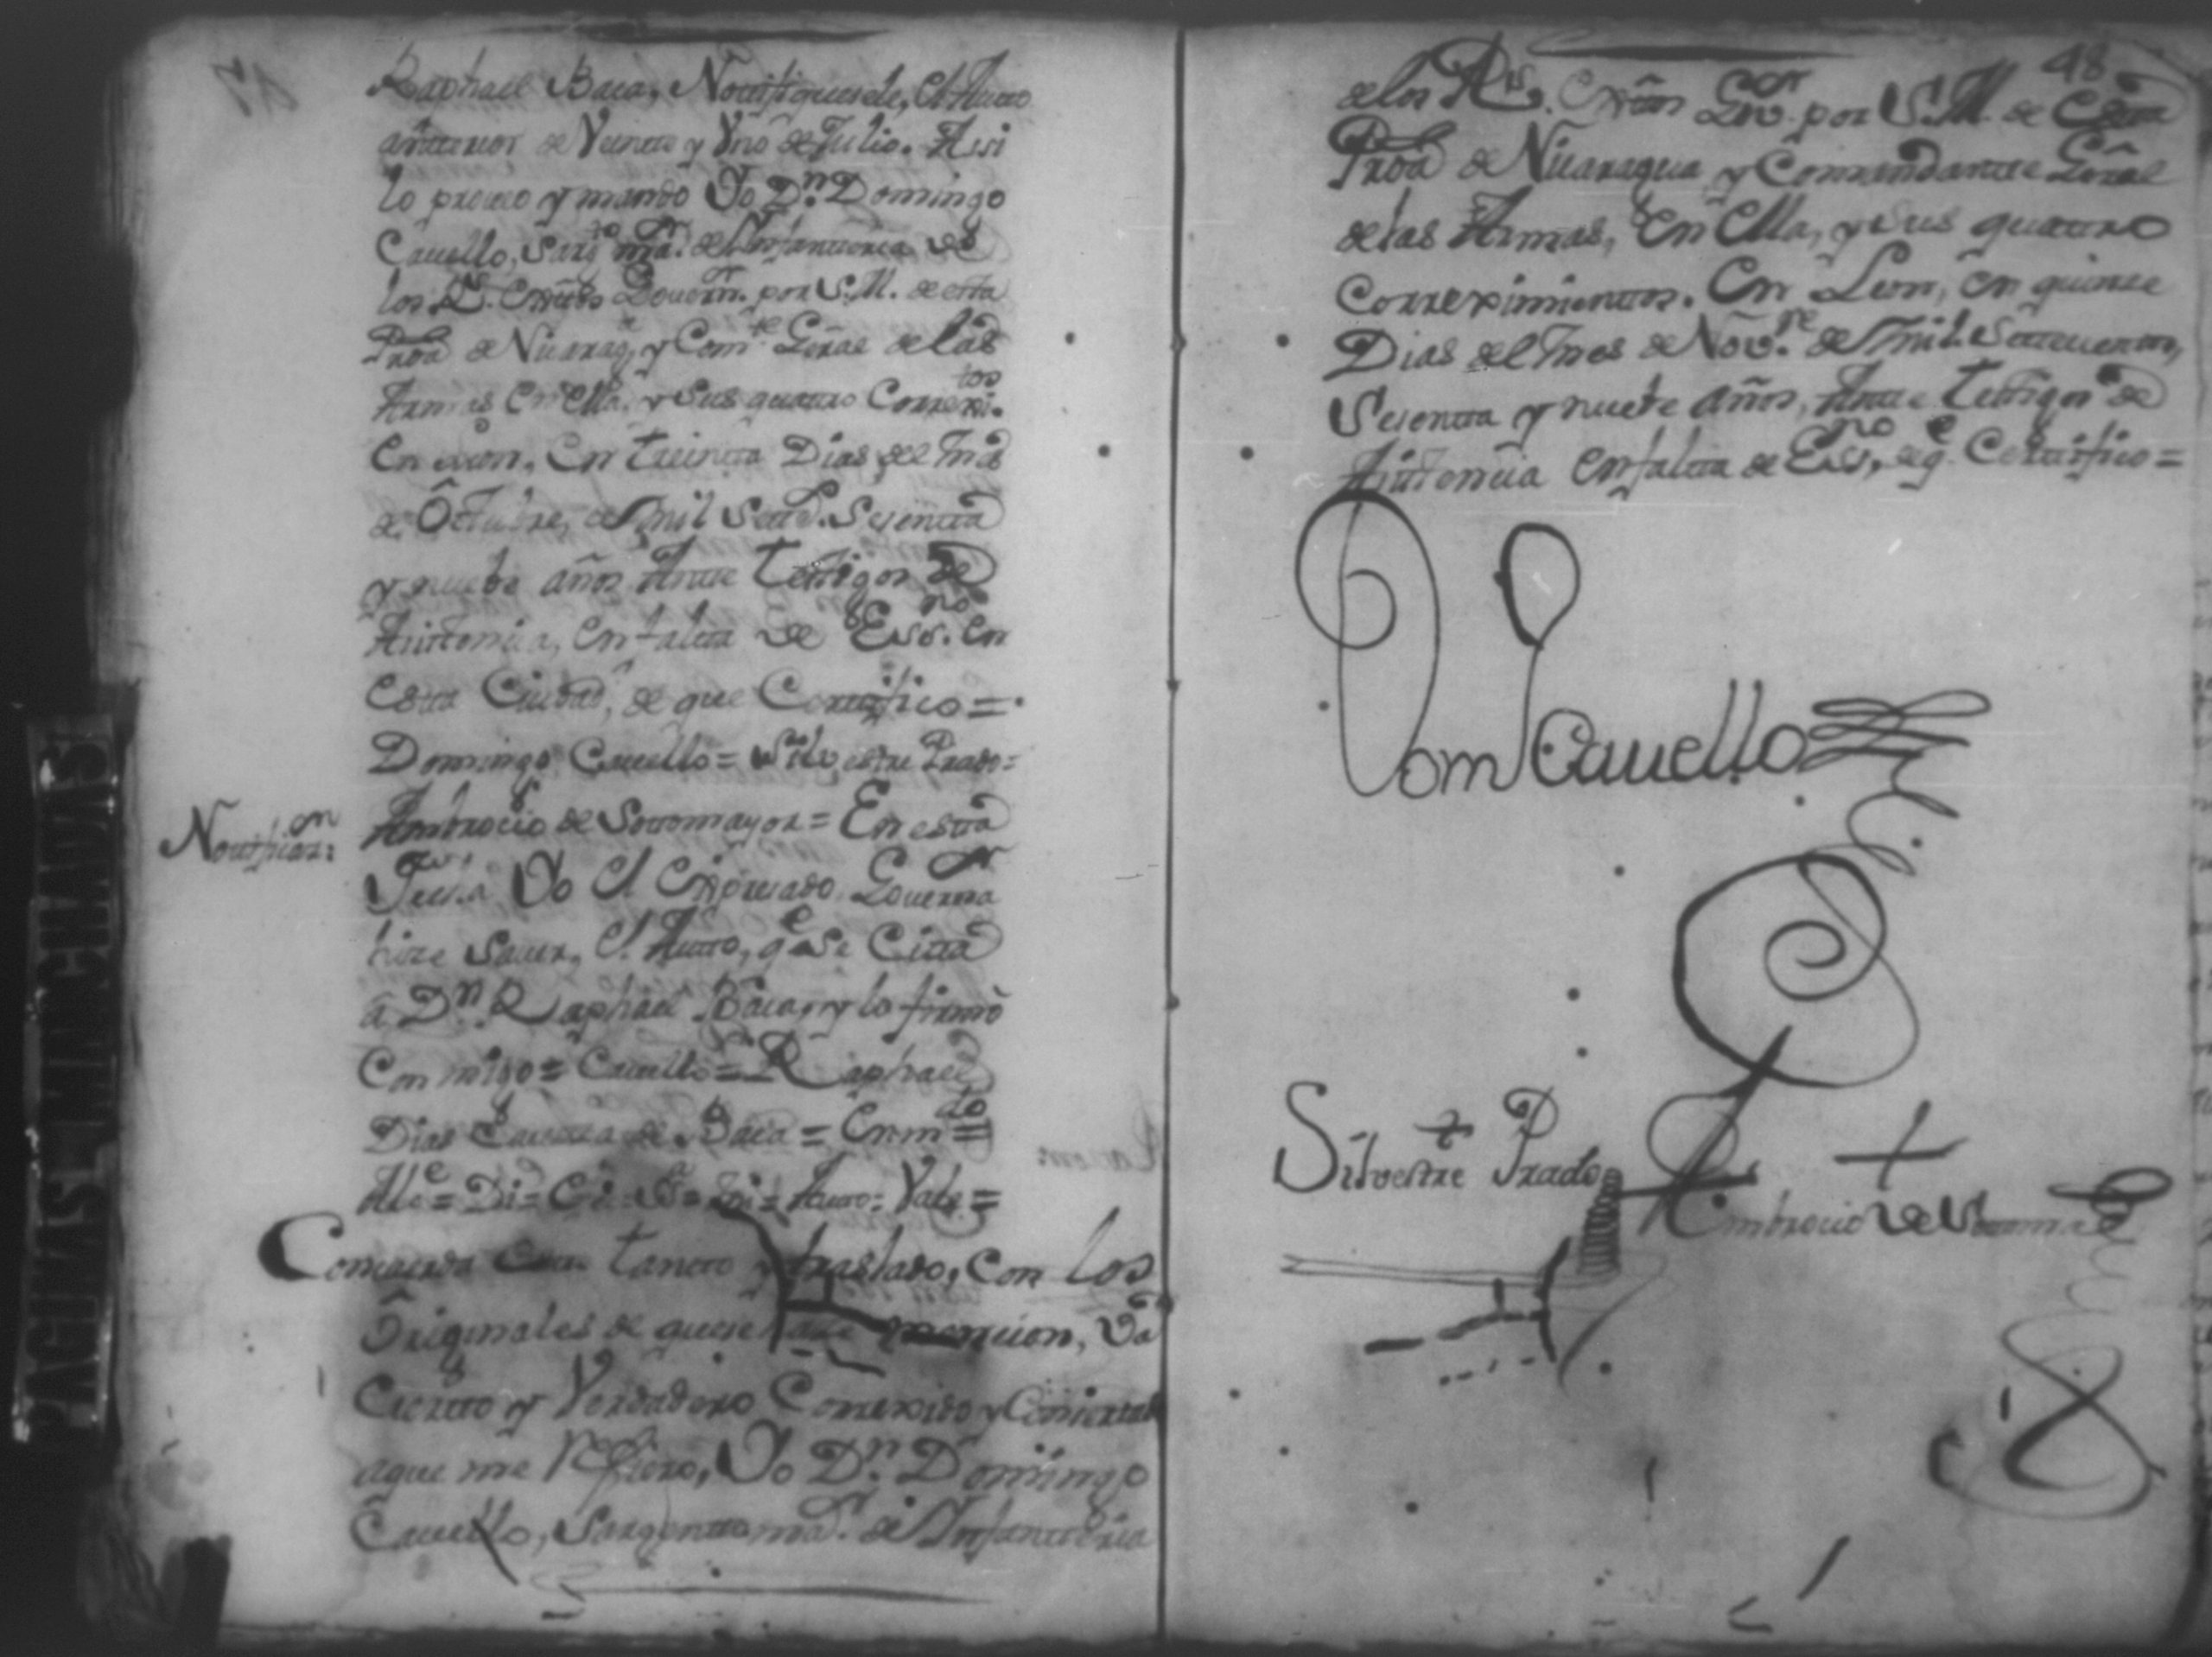 Raphael Baca, Nottifiquesele, El Autto
anttterior de Veintte y Vno de Julio. Assi
lo proveo y mando Yo Dn. Domingo
Cavello, Sargto. mar. de Ynfantteria de
los Rs. Exttos Governr. por S.M. de esta
Proa. de Nicarag, y Comte. Genral de las
Armas En ella y sus quattro Correximtos.
En Leon, En treintta Dias del mes
de Octtubre, de mil Settes. Sesentta
y nuebe años Antte testtigos de
Asisttencia, En falta de Essno. En
Estta Ciudad, de que Certtifico =
Domingo Cavello = Silvestre Prado =
Nottificon:
Ambrocio de Sottomayor = En estta
Yo El Expresado Governr
hize saver, El Autto, qe. se Citta
â Dn. Raphael Baca, y lo firmò
Conmigo = Cavello = Raphael
Dias Caveza de Baca = Enmdo =
Autto = Vale =
Concuerda Estte tantto y traslado, Con los
Originales de que se hace mencion, Va
Ciertto y Verdadero Correxido y Conserttado
aque me Refiero, Yo Dn. Domingo
Cavello, Sargentto mar. de Ynfantteria
48
de los Rs. Exttos Govr. por S.M. de Esta
Proa de Nicaragua y Commandantte Genral
de las Armas, En Ella, y sus quattro
Correximienttos. En Leon, en quinse
Dias del mes de Nove. de mil Settecienttos,
Sesentta y nuebe años, Antte testtigos de
Asisttencia En faltta de Essno, de qe. Certtifico =
Dom Cavello
Silvestre Prado
Ambrocio de